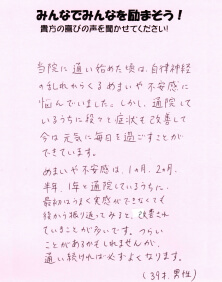 みんなでみんなを励まそう!
貴方の喜びの声を聞かせてください!
当院に通い始めた頃は、自律神経
の乱れからくるめまいや不安感に
悩んでいました。しかし、通院して
いるうちに段々と症状も改善して
今は元気に毎日を過ごすことが
できています。
めまいや不安感は、1ヵ月、2ヵ月、
半年、1年と通院しているうちに、
最初はうまく実感ができなくても
後から振り返ってみると、改善され
ていることが多いです。つらい
ことがあるかもしれませんが、
通い続ければ必ずよくなります。
(39才、男性)